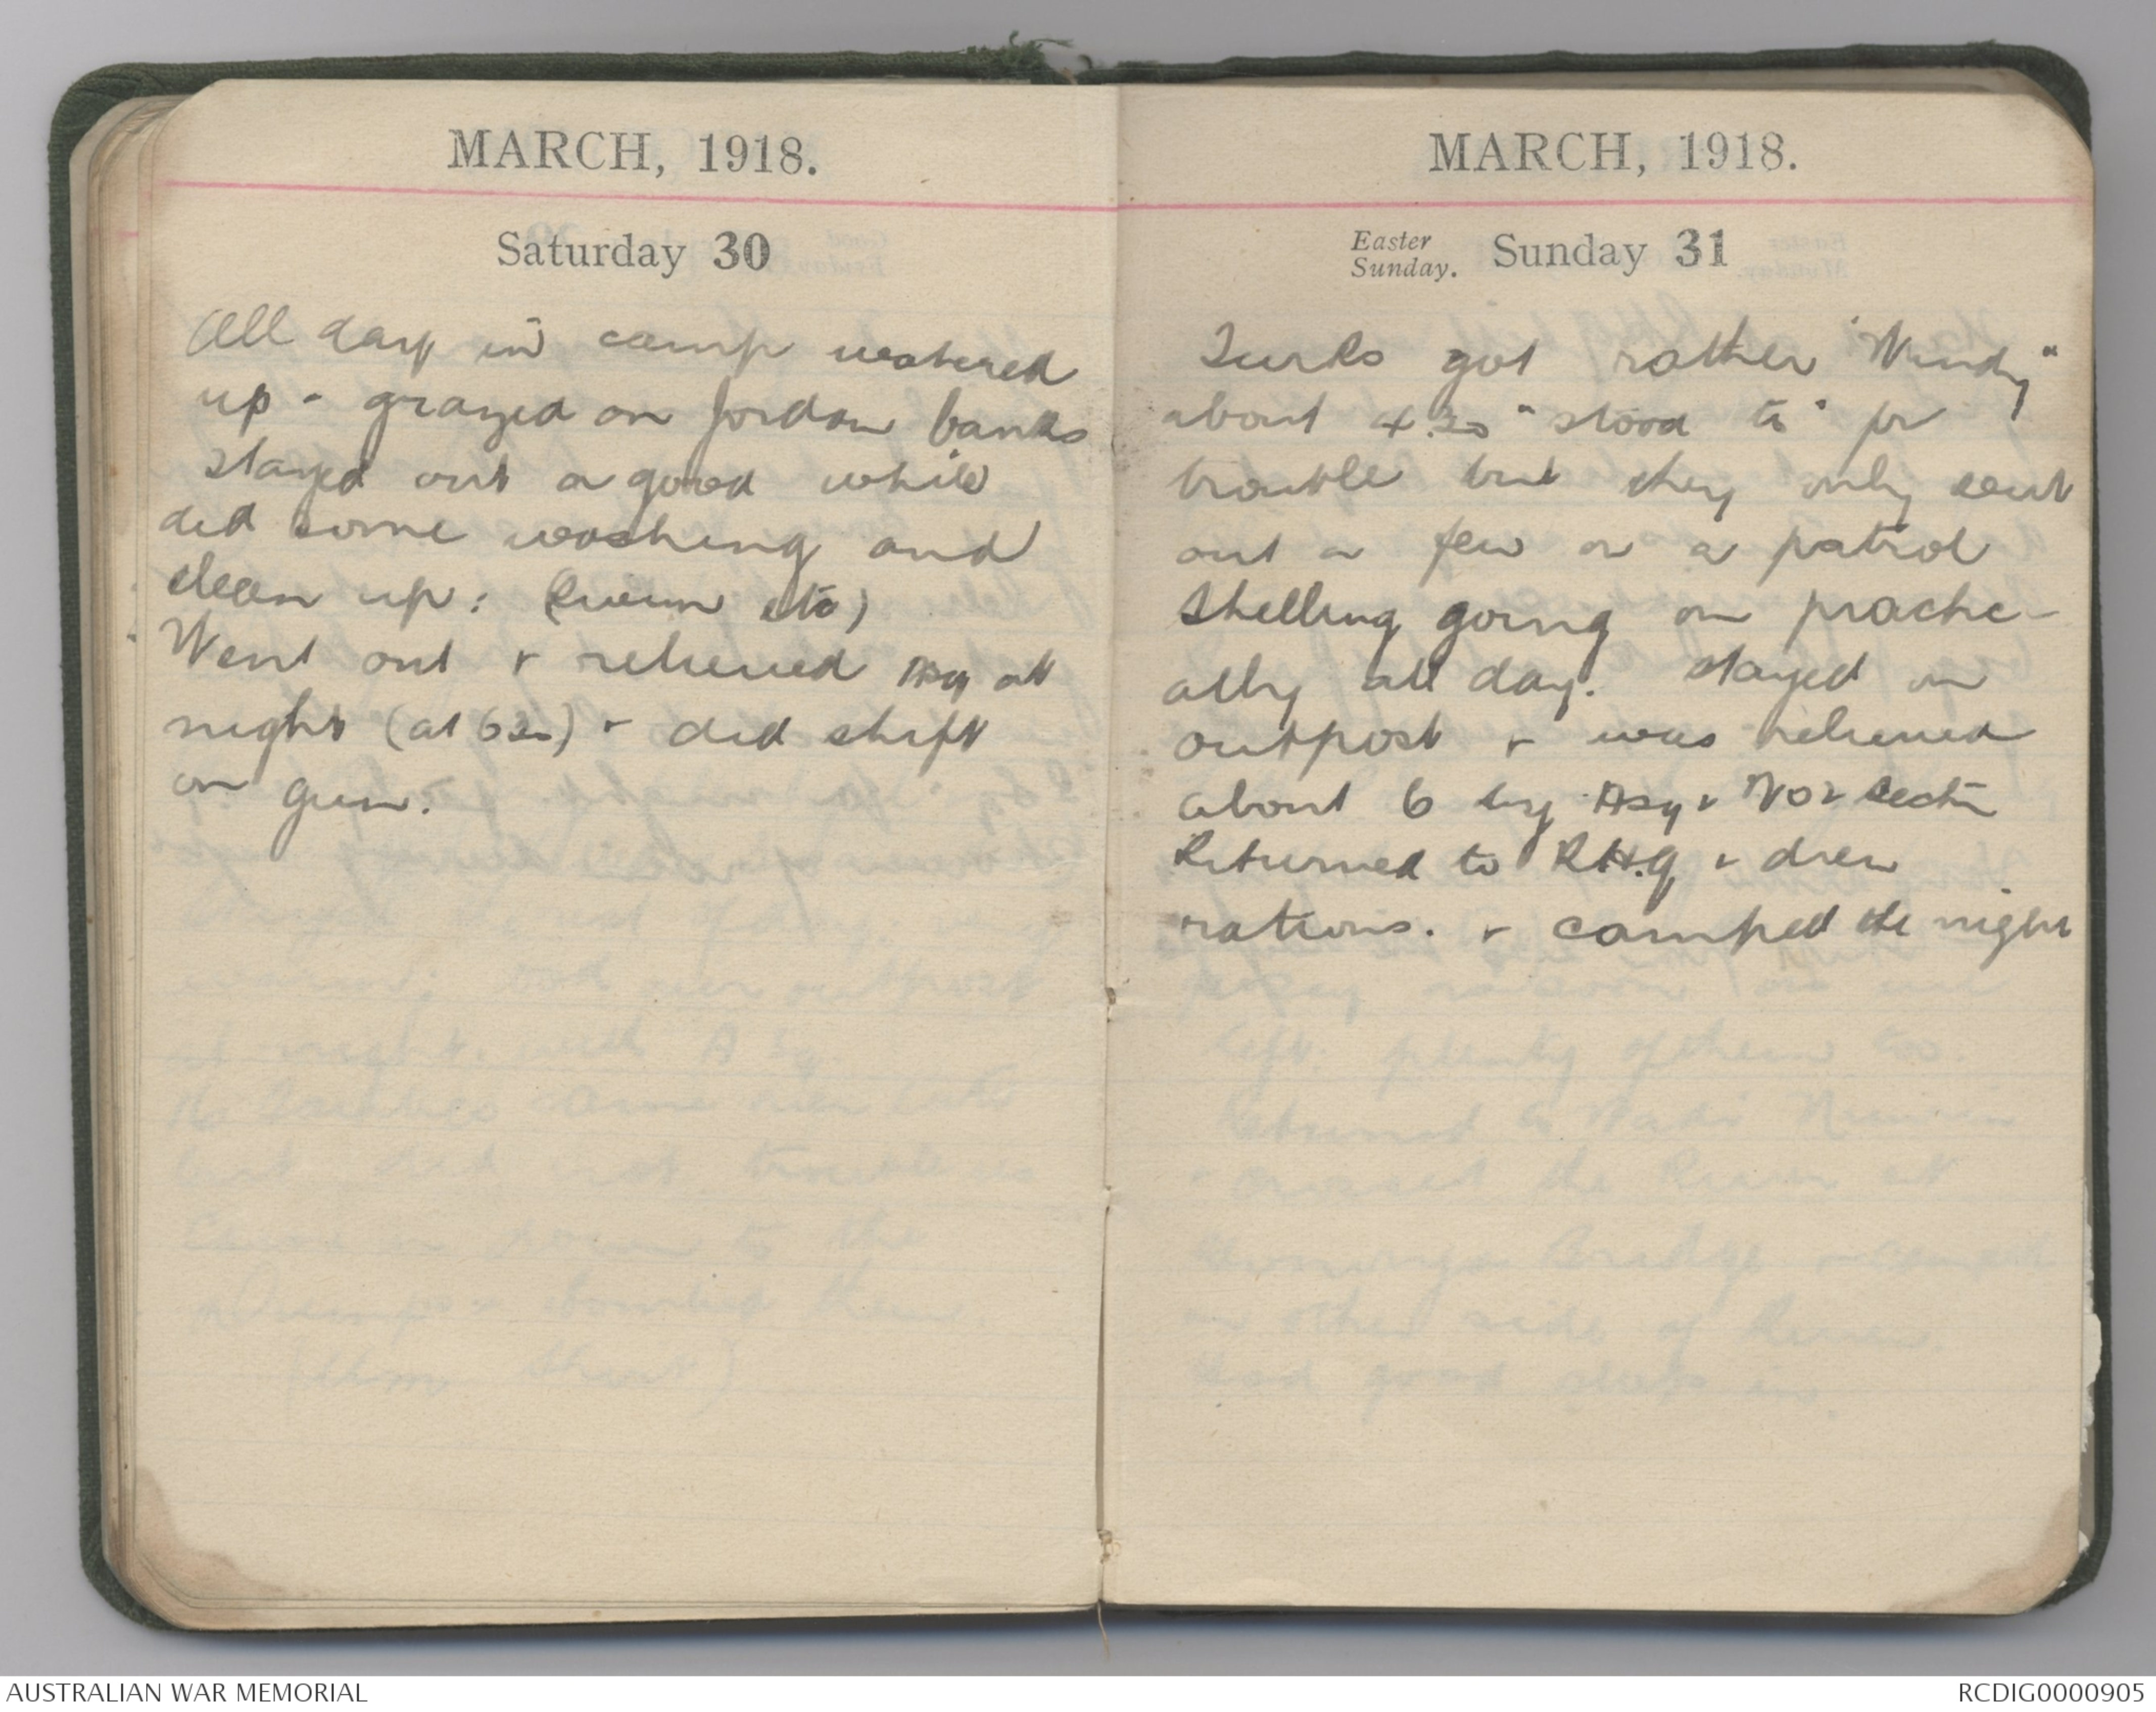 MARCH, 1918.
Saturday 30
All day in camp watered
up - grazed on Jordan banks
stayed out a good while
did some washing and
clean up: (Swim etc)
Went out & relieved A Sq at
night (at 630) & did shift
on gun.
MARCH, 1918.
Easter Sunday. Sunday 31
Turks got rather "Windy"
about 4.30 "stood to" for
trouble but they only sent
out a few on a patrol
Shelling going on practic-
ally all day. stayed on
outpost & was relieved
about 6 by A Sq & No 2 Section
Returned to RH.Q & drew
rations. & camped the night
AUSTRALIAN WAR MEMORIAL
RCDIG0000905